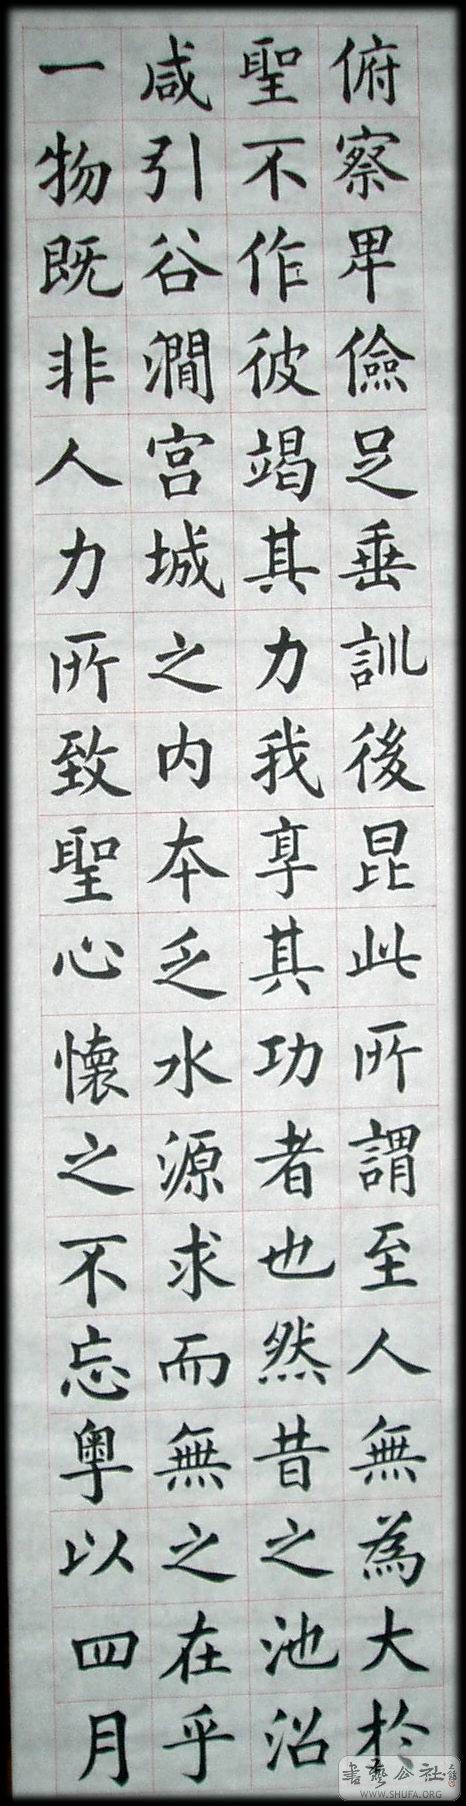 俯察卑儉足垂訓後昆此所謂至人無為大於
聖不作彼竭其力我享其功者也然昔之池沼
咸引谷澗宮城之內本乏水源求而無之在乎
一物既非人力所致聖心懷之不忘粵以四月
書藝公社
WWW.SHUFA.ORG